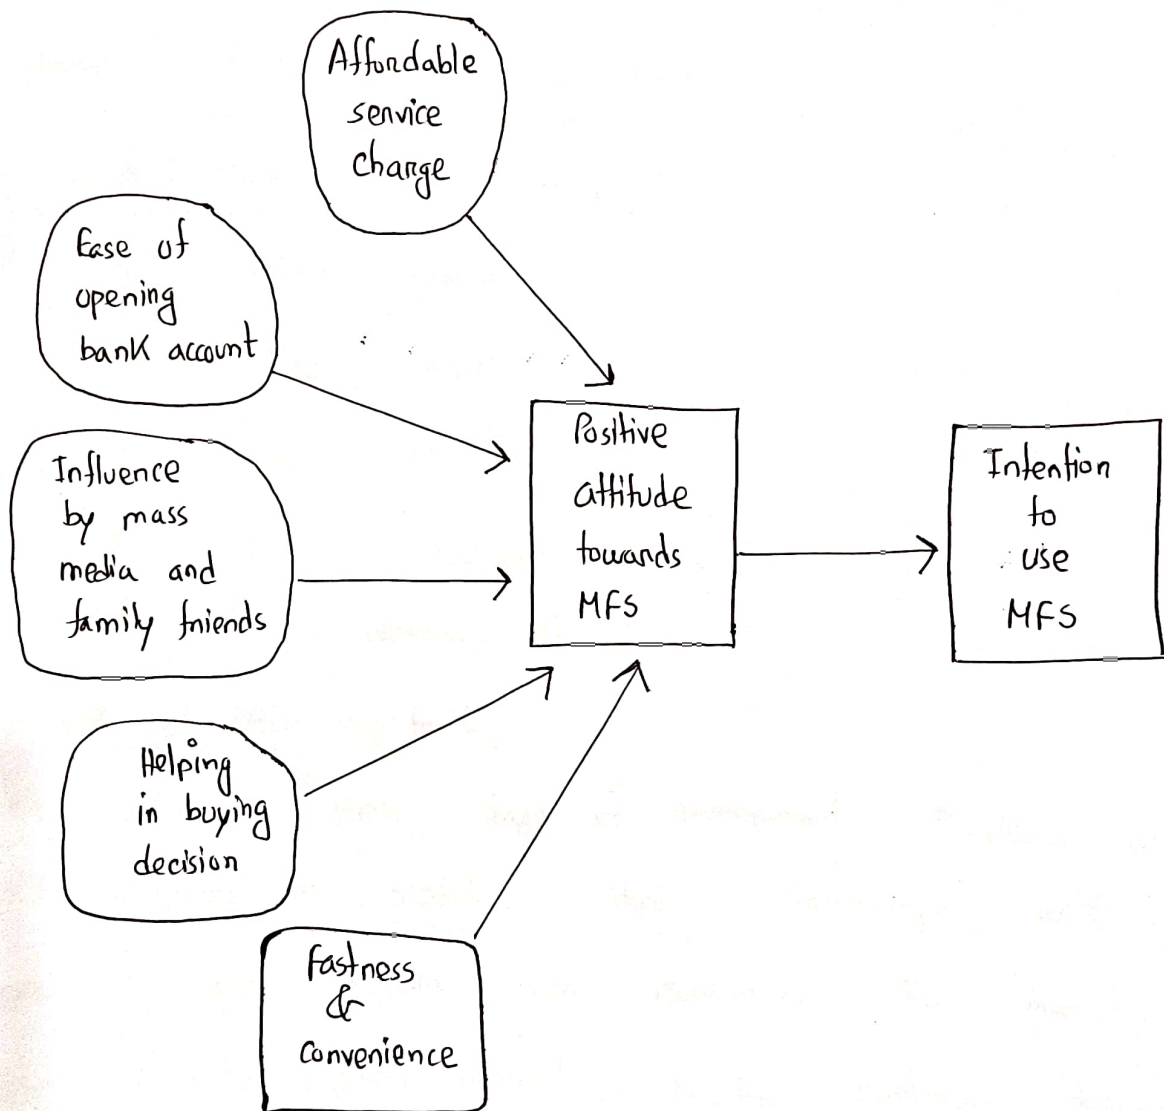 Affordable
service
charge
Ease of
opening
bank account
Influence
by mass
media and
family friends
Helping
in buying
decision
Fastness
&
convenience
Positive
attitude
towards
MFS
Intention
to
use
MFS